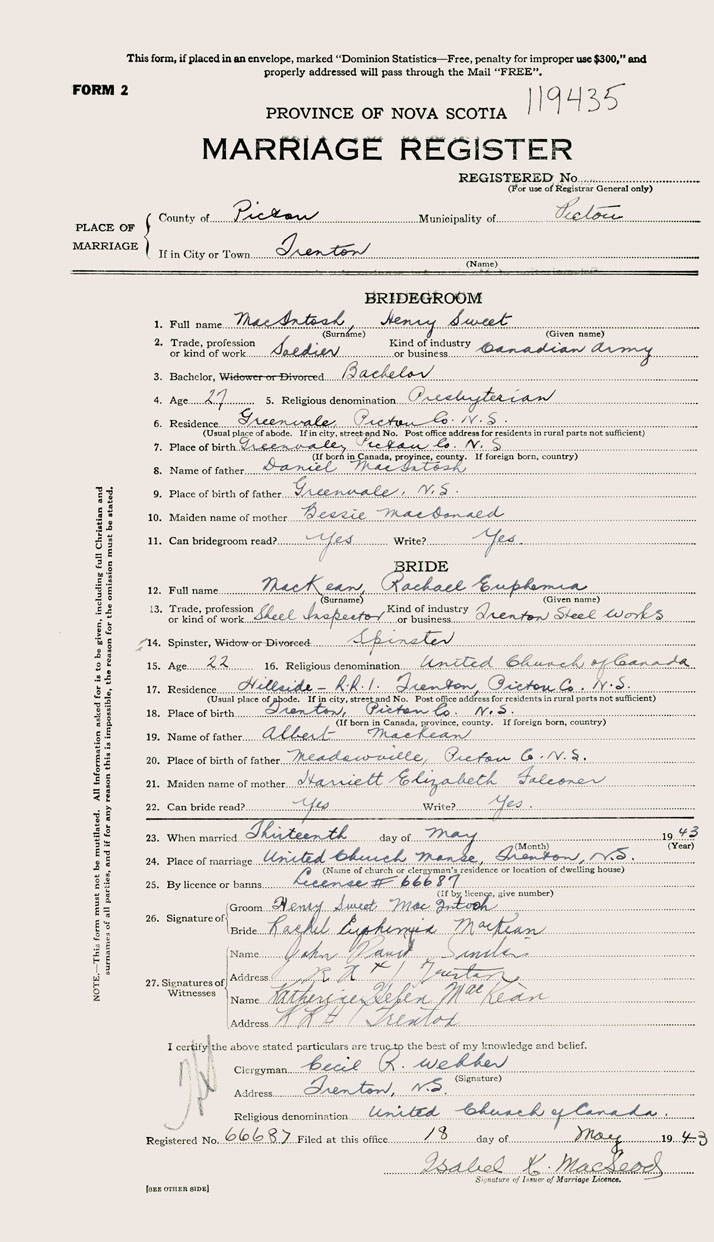 This form, if placed in an envelope, marked "Dominion Statistics—Free, penalty for improper use $300," and
properly addressed will pass through the Mail "FREE".
FORM 2
119435
PROVINCE OF NOVA SCOTIA
MARRIAGE REGISTER
REGISTERED No.
(For use of Registrar General only)
PLACE OF MARRIAGE
County of Pictou Municipality of Pictou
If in City or Town Trenton
(Name)
BRIDEGROOM
1. Full name MacIntosh, Henry Sweet
(Surname) (Given name)
2. Trade, profession or kind of work Soldier Kind of industry or business Canadian Army
3. Bachelor, Widower or Divorced Bachelor
4. Age 27 5. Religious denomination Presbyterian
6. Residence Greenvale, Pictou Co. N.S.
(Usual place of abode. If in city, street and No. Post office address for residents in rural parts not sufficient)
7. Place of birth Greenvale, Pictou Co. N.S.
(If born in Canada, province, county. If foreign born, country)
8. Name of father Daniel MacIntosh
9. Place of birth of father Greenvale, N.S.
10. Maiden name of mother Bessie MacDonald
11. Can bridegroom read? Yes Write? Yes.
BRIDE
12. Full name MacKean, Rachael Euphemia
(Surname) (Given name)
13. Trade, profession or kind of work Shell Inspector Kind of industry or business Trenton Steel Works
14. Spinster, Widow or Divorced Spinster
15. Age 22 16. Religious denomination United Church of Canada
17. Residence Hillside - R.R.1. Trenton, Pictou Co. N.S.
(Usual place of abode. If in city, street and No. Post office address for residents in rural parts not sufficient)
18. Place of birth Trenton, Pictou Co. N.S.
(If born in Canada, province, county. If foreign born, country)
19. Name of father Albert MacKean
20. Place of birth of father Meadowville, Pictou Co. N.S.
21. Maiden name of mother Harriett Elizabeth Falconer
22. Can bride read? Yes Write? Yes.
23. When married Thirteenth day of May 1943
(Month) (Year)
24. Place of marriage United Church Manse, Trenton, N.S.
(Name of church or clergyman's residence or location of dwelling house)
25. By licence or banns License # 66687
(If by licence, give number)
26. Signature of
Groom Henry Sweet MacIntosh
Bride Rachel Euphemia MacKean
27. Signatures of Witnesses
Name John David
Address R R # 1 Trenton
Name Katherine Helen MacKean
Address R R # 1 Trenton
I certify the above stated particulars are true to the best of my knowledge and belief.
Clergyman Cecil R. Webber
(Signature)
Address Trenton, N.S.
Religious denomination United Church of Canada.
Registered No. 66687 Filed at this office 18 day of May 1943
Isabel K. MacLeod
Signature of Issuer of Marriage Licence.
[SEE OTHER SIDE]
NOTE.—This form must not be mutilated. All information asked for is to be given, including full Christian and
surnames of all parties, and if for any reason this is impossible, the reason for the omission must be stated.